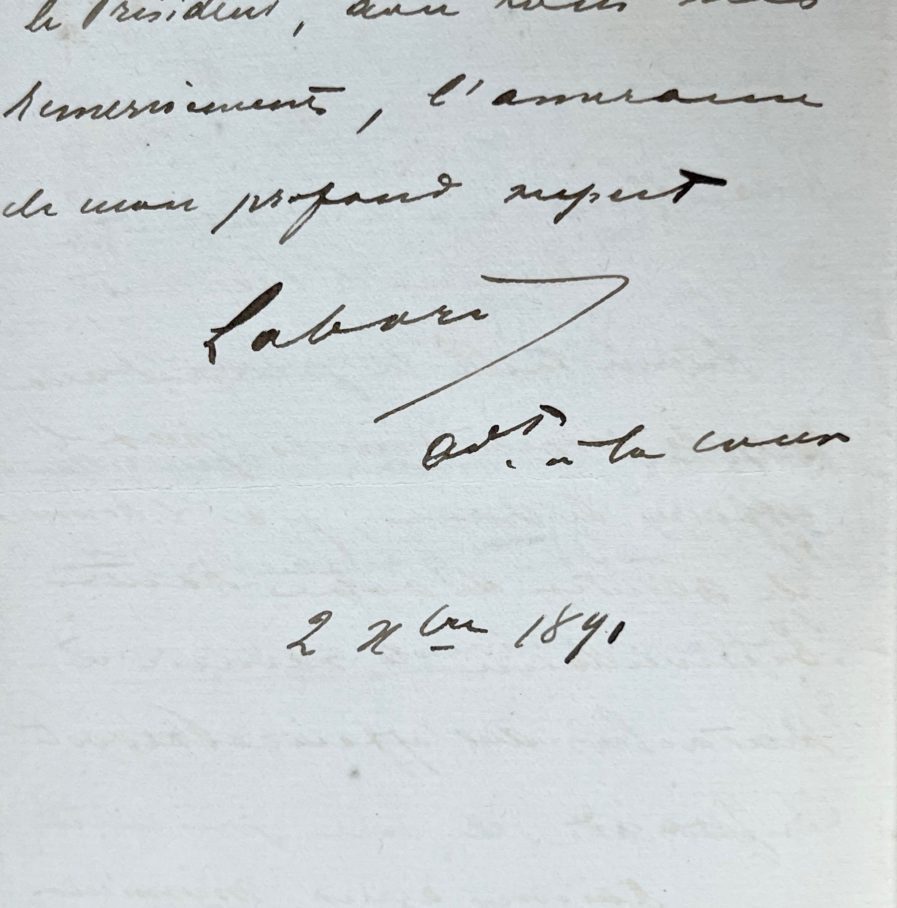 le Président, avec tous mes
remerciements, l'assurance
de mon profond respect
Labori
avt. à la cour
2 Xbre 1891